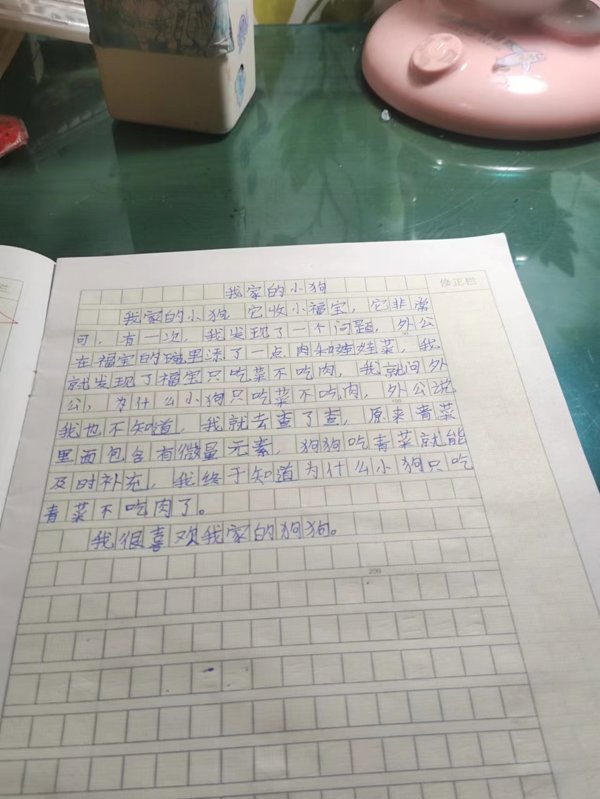 我家的小狗
修正栏
我家的小狗,它收小福宝,它非常
可,有一次,我发现了一个问题,外公
在福宝的碗里添了一点肉和娃娃菜,我
就发现了福宝只吃菜不吃肉,我就问外
公,为什么小狗只吃菜不吃肉,外公说
我也不知道,我就去查了查,原来青菜
里面包含有微量元素,狗狗吃青菜就能
及时补充,我终于知道为什么小狗只吃
青菜不吃肉了。
我很喜欢我家的狗狗。
200